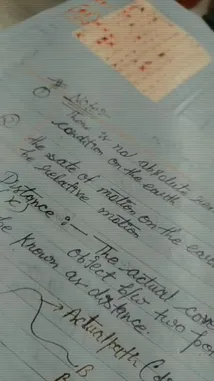 * Note:-
① There is no absolute
condition on the earth
② the state of motion on the
the relative motion
Distance :- The actual
object b/w two
be known as distance.
Actual path
B